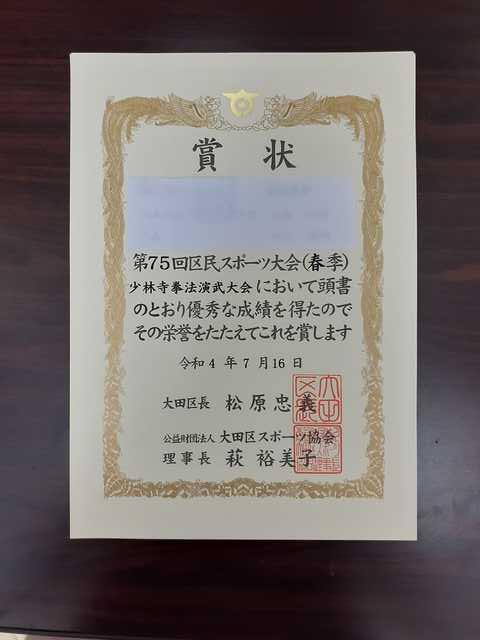 賞状
第75回区民スポーツ大会(春季)
少林寺拳法演武大会において頭書
のとおり優秀な成績を得たので
その栄誉をたたえてこれを賞します
令和4年7月16日
大田区長 松原忠義
公益財団法人 大田区スポーツ協会
理事長 萩裕美子